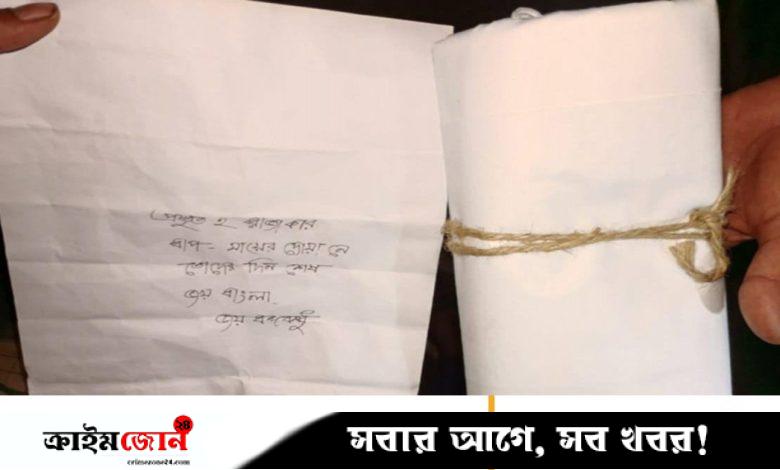 প্রস্তুত হ রাজাকার
বাপ- মায়ের দোয়া নে
তোদের দিন শেষ
জয় বাংলা.
জয় বঙ্গবন্ধু
ক্রাইমজোন ২৪
crimezone24.com
সবার আগে, সব খবর!